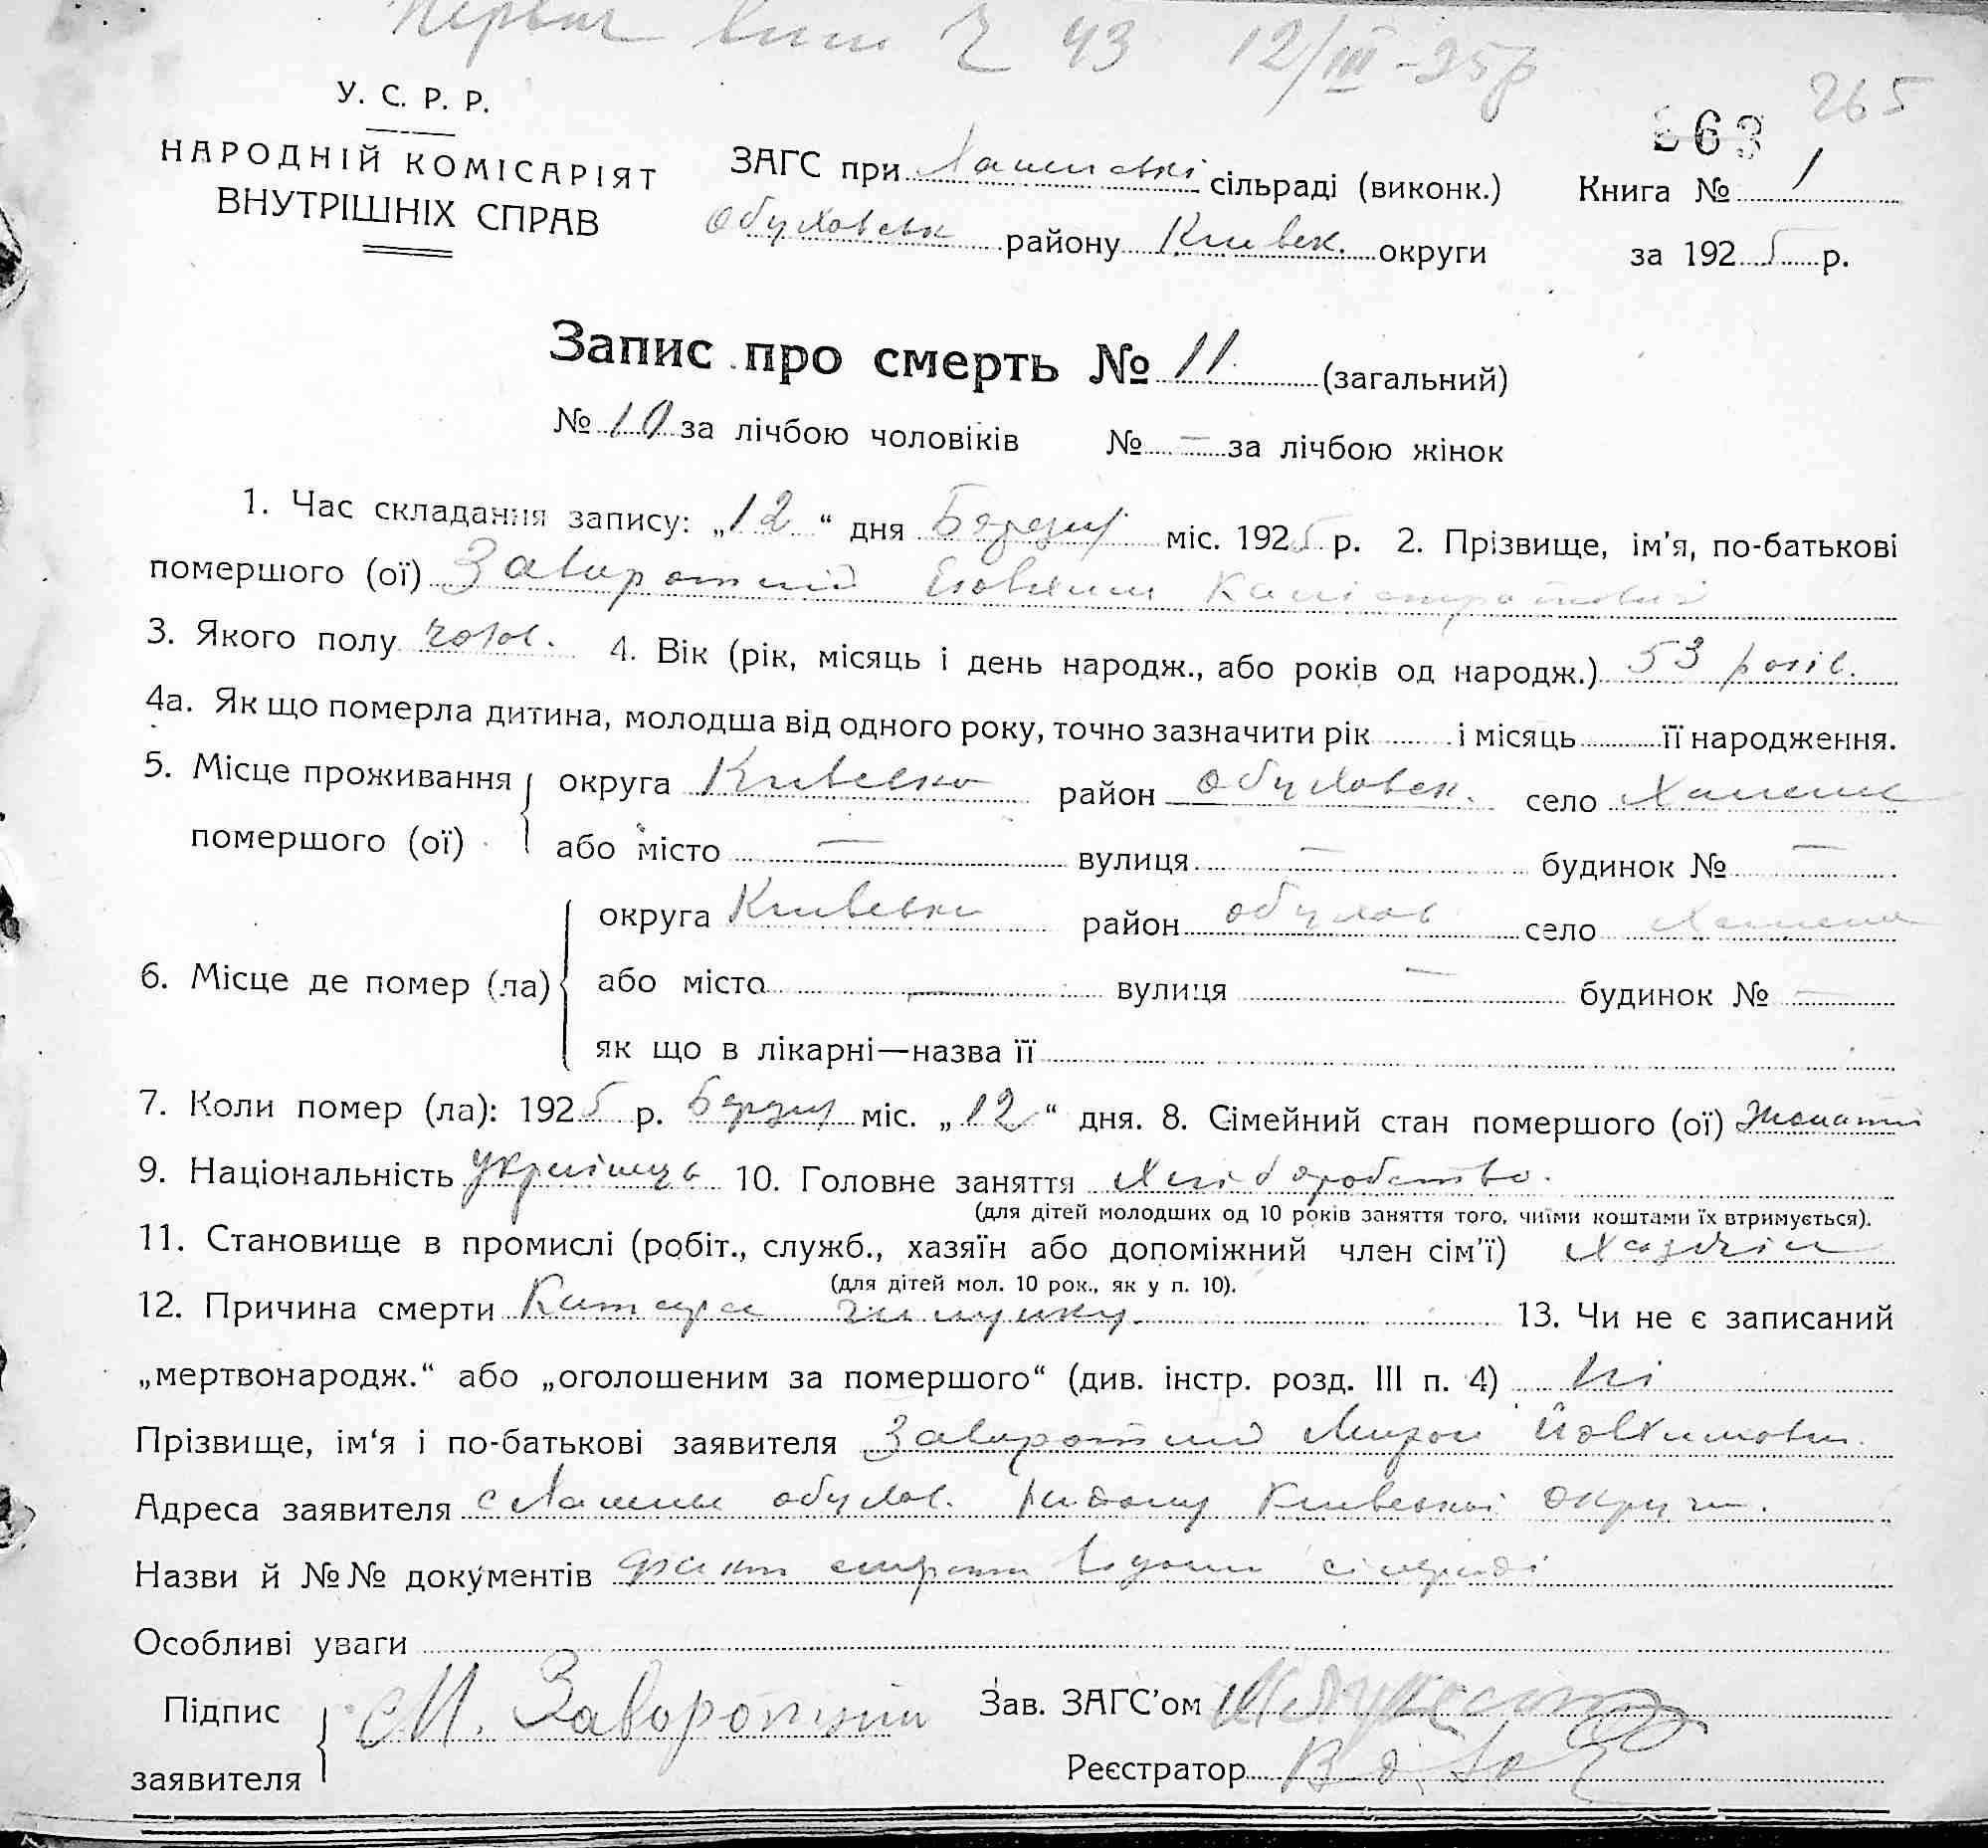 43 12/III-25р
265
У. С. Р. Р.
НАРОДНІЙ КОМІСАРІЯТ
ВНУТРІШНІХ СПРАВ
ЗАГС при сільраді (виконк.)
Обуховськ району Київськ. округи
Книга № 1
за 1925 р.
Запис про смерть № 11 (загальний)
№ 10 за лічбою чоловіків № — за лічбою жінок
1. Час складання запису: „12“ дня Березня міс. 1925 р. 2. Прізвище, ім’я, по-батькові
помершого (ої) Заворотній Калістратович
3. Якого полу чолов. 4. Вік (рік, місяць і день народж., або років од народж.) 53 років.
4а. Як що померла дитина, молодша від одного року, точно зазначити рік і місяць її народження.
5. Місце проживання помершого (ої)
округа Київська район Обуховськ. село
або місто — вулиця — будинок № —
6. Місце де помер (ла)
округа Київська район Обухов село
або місто — вулиця — будинок № —
як що в лікарні—назва її
7. Коли помер (ла): 1925 р. Березня міс. „12“ дня. 8. Сімейний стан помершого (ої) Жонатий
9. Національність Українець 10. Головне заняття Хліборобство.
(для дітей молодших од 10 років заняття того, чиїми коштами їх втримується).
11. Становище в промислі (робіт., служб., хазяїн або допоміжний член сім’ї) Хазяїн
(для дітей мол. 10 рок., як у п. 10).
12. Причина смерти Катара шлунку. 13. Чи не є записаний
„мертвонародж.“ або „оголошеним за помершого“ (див. інстр. розд. III п. 4) ні
Прізвище, ім‘я і по-батькові заявителя Заворотний Мирон Йовхимов.
Адреса заявителя с обухов. району Київської округи.
Назви й №№ документів факт смерти сільраді
Особливі уваги
Підпис заявителя М. Заворотний
Зав. ЗАГС’ом
Реєстратор